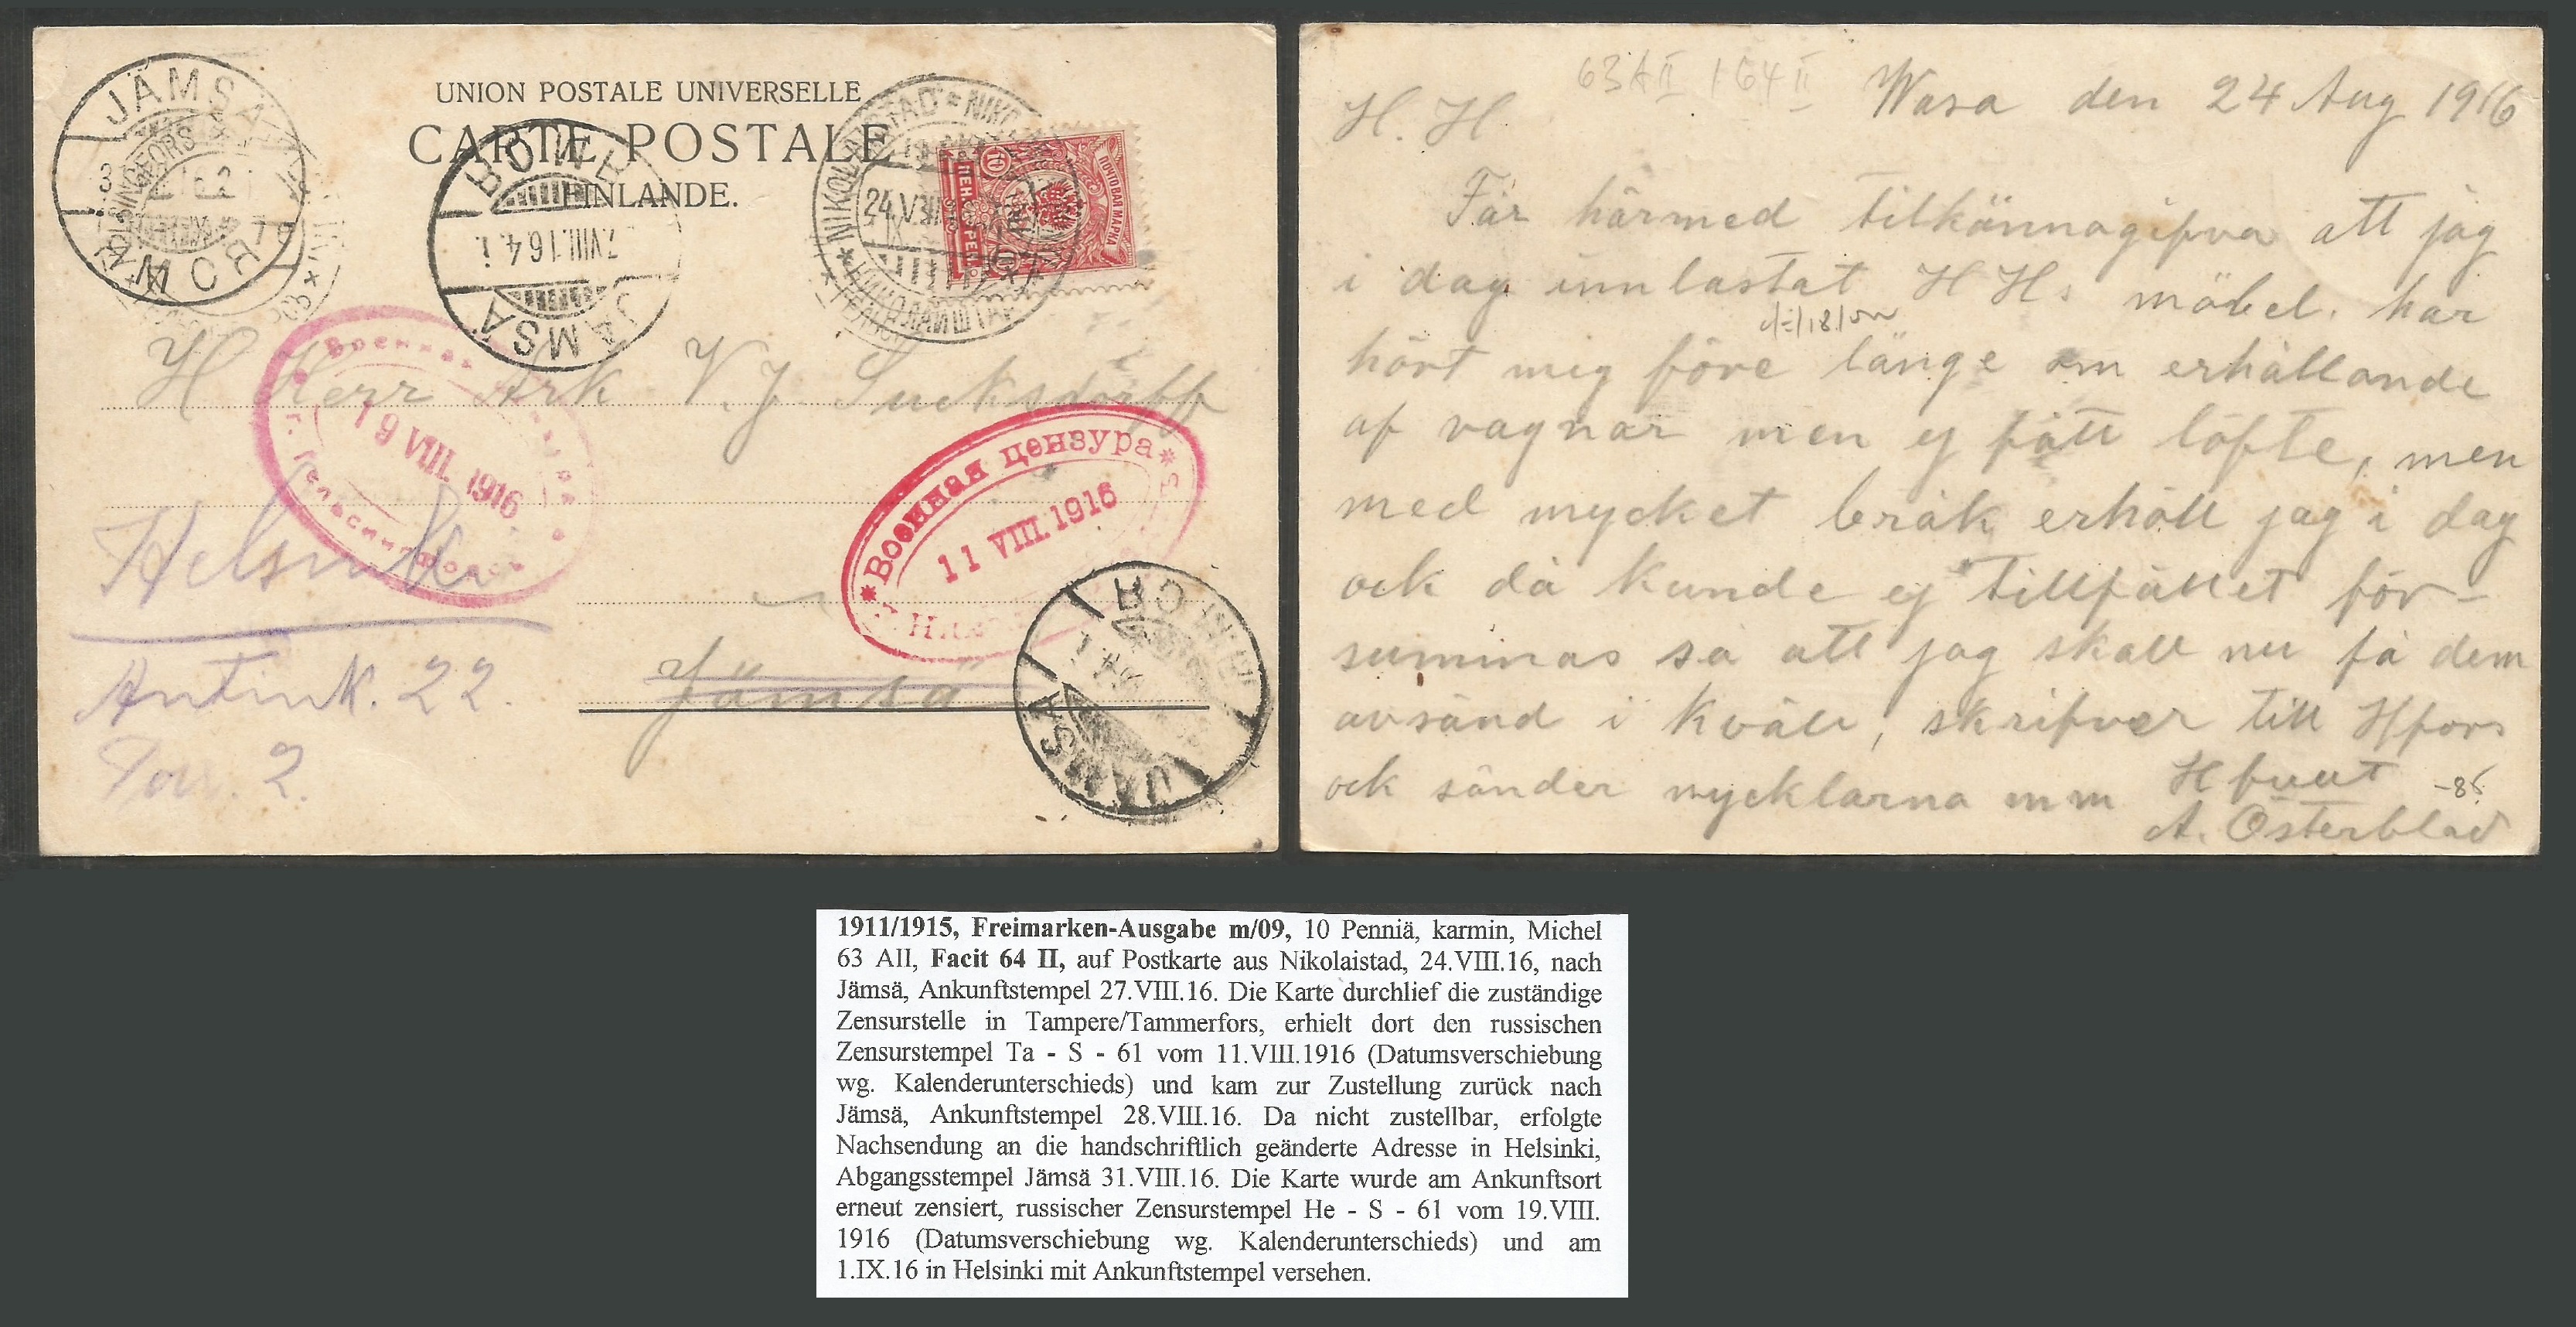 UNION POSTALE UNIVERSELLE
CARTE POSTALE
FINLANDE.
JÄMSÄ
HELSINGFORS
ЯМСЯ
JÄMSÄ
7.VIII.16.4.
NIKOLAISTAD * NIKO
24.VIII
НИКОЛАЙШТАД
ПОЧТОВАЯ МАРКА
10
ПЕН
H Herr Ark V. J. Sucksdorff
Военная
19 VIII. 1916
*Военная цензура*
11 VIII. 1916
Helsinki
Antink. 22.
2.
Jämsä
JÄMSÄ
63 A II / 64 II
Wasa den 24 Aug 1916
H. H
Får härmed tilkännagifva att jag
i dag innlastat H H. möbel. har
hört mig före länge om erhållande
af vagnar men ej fått löfte, men
med mycket bråk erhöll jag i dag
ock då kunde ej tillfället för-
summas så att jag skall nu få dem
avsänd i kväll, skrifver till Hfors
ock sänder nycklarna mm
A. Österblad
1911/1915, Freimarken-Ausgabe m/09, 10 Penniä, karmin, Michel
63 AII, Facit 64 II, auf Postkarte aus Nikolaistad, 24.VIII.16, nach
Jämsä, Ankunftstempel 27.VIII.16. Die Karte durchlief die zuständige
Zensurstelle in Tampere/Tammerfors, erhielt dort den russischen
Zensurstempel Ta - S - 61 vom 11.VIII.1916 (Datumsverschiebung
wg. Kalenderunterschieds) und kam zur Zustellung zurück nach
Jämsä, Ankunftstempel 28.VIII.16. Da nicht zustellbar, erfolgte
Nachsendung an die handschriftlich geänderte Adresse in Helsinki,
Abgangsstempel Jämsä 31.VIII.16. Die Karte wurde am Ankunftsort
erneut zensiert, russischer Zensurstempel He - S - 61 vom 19.VIII.
1916 (Datumsverschiebung wg. Kalenderunterschieds) und am
1.IX.16 in Helsinki mit Ankunftstempel versehen.